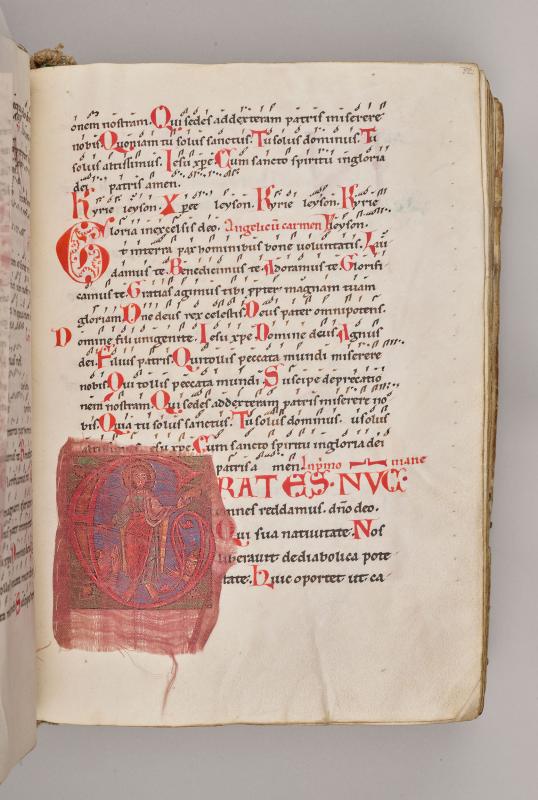 onem nostram. Qui sedes addexteram patris miserere
nobis. Quoniam tu solus sanctus. Tu solus dominus. Tu
solus altissimus. Iesu xpe. Cum sancto spiritu ingloria
dei patris amen.
Kyrie leyson. Xpee leyson. Kyrie leyson. Kyrie
Gloria inexcelsis deo. Angelicū carmen leyson.
t interra pax hominibus bone voluntatis. Lau
damus te. Benedicimus te. Adoramus te. Glorifi
camus te. Gratias agimus tibi ppter magnam tuam
gloriam. Dne deus rex celestis. Deus pater omnipotens.
Domine fili unigenite. Iesu xpe. Domine deus. Agnus
dei. Filius patris. Qui tollis peccata mundi miserere
nobis. Qui tollis peccata mundi. Suscipe deprecatio
nem nostram. Qui sedes addexteram patris miserere no
bis. Quia tu solus sanctus. Tu solus dominus. tu solus
altissimus. Iesu xpe. Cum sancto spiritu ingloria dei
patris a men. In primo mane
RATES. NVC:
omnes reddamus. dño deo.
Qui sua nativitate. Nos
liberavit dediabolica pote
state. Huic oportet ut ca